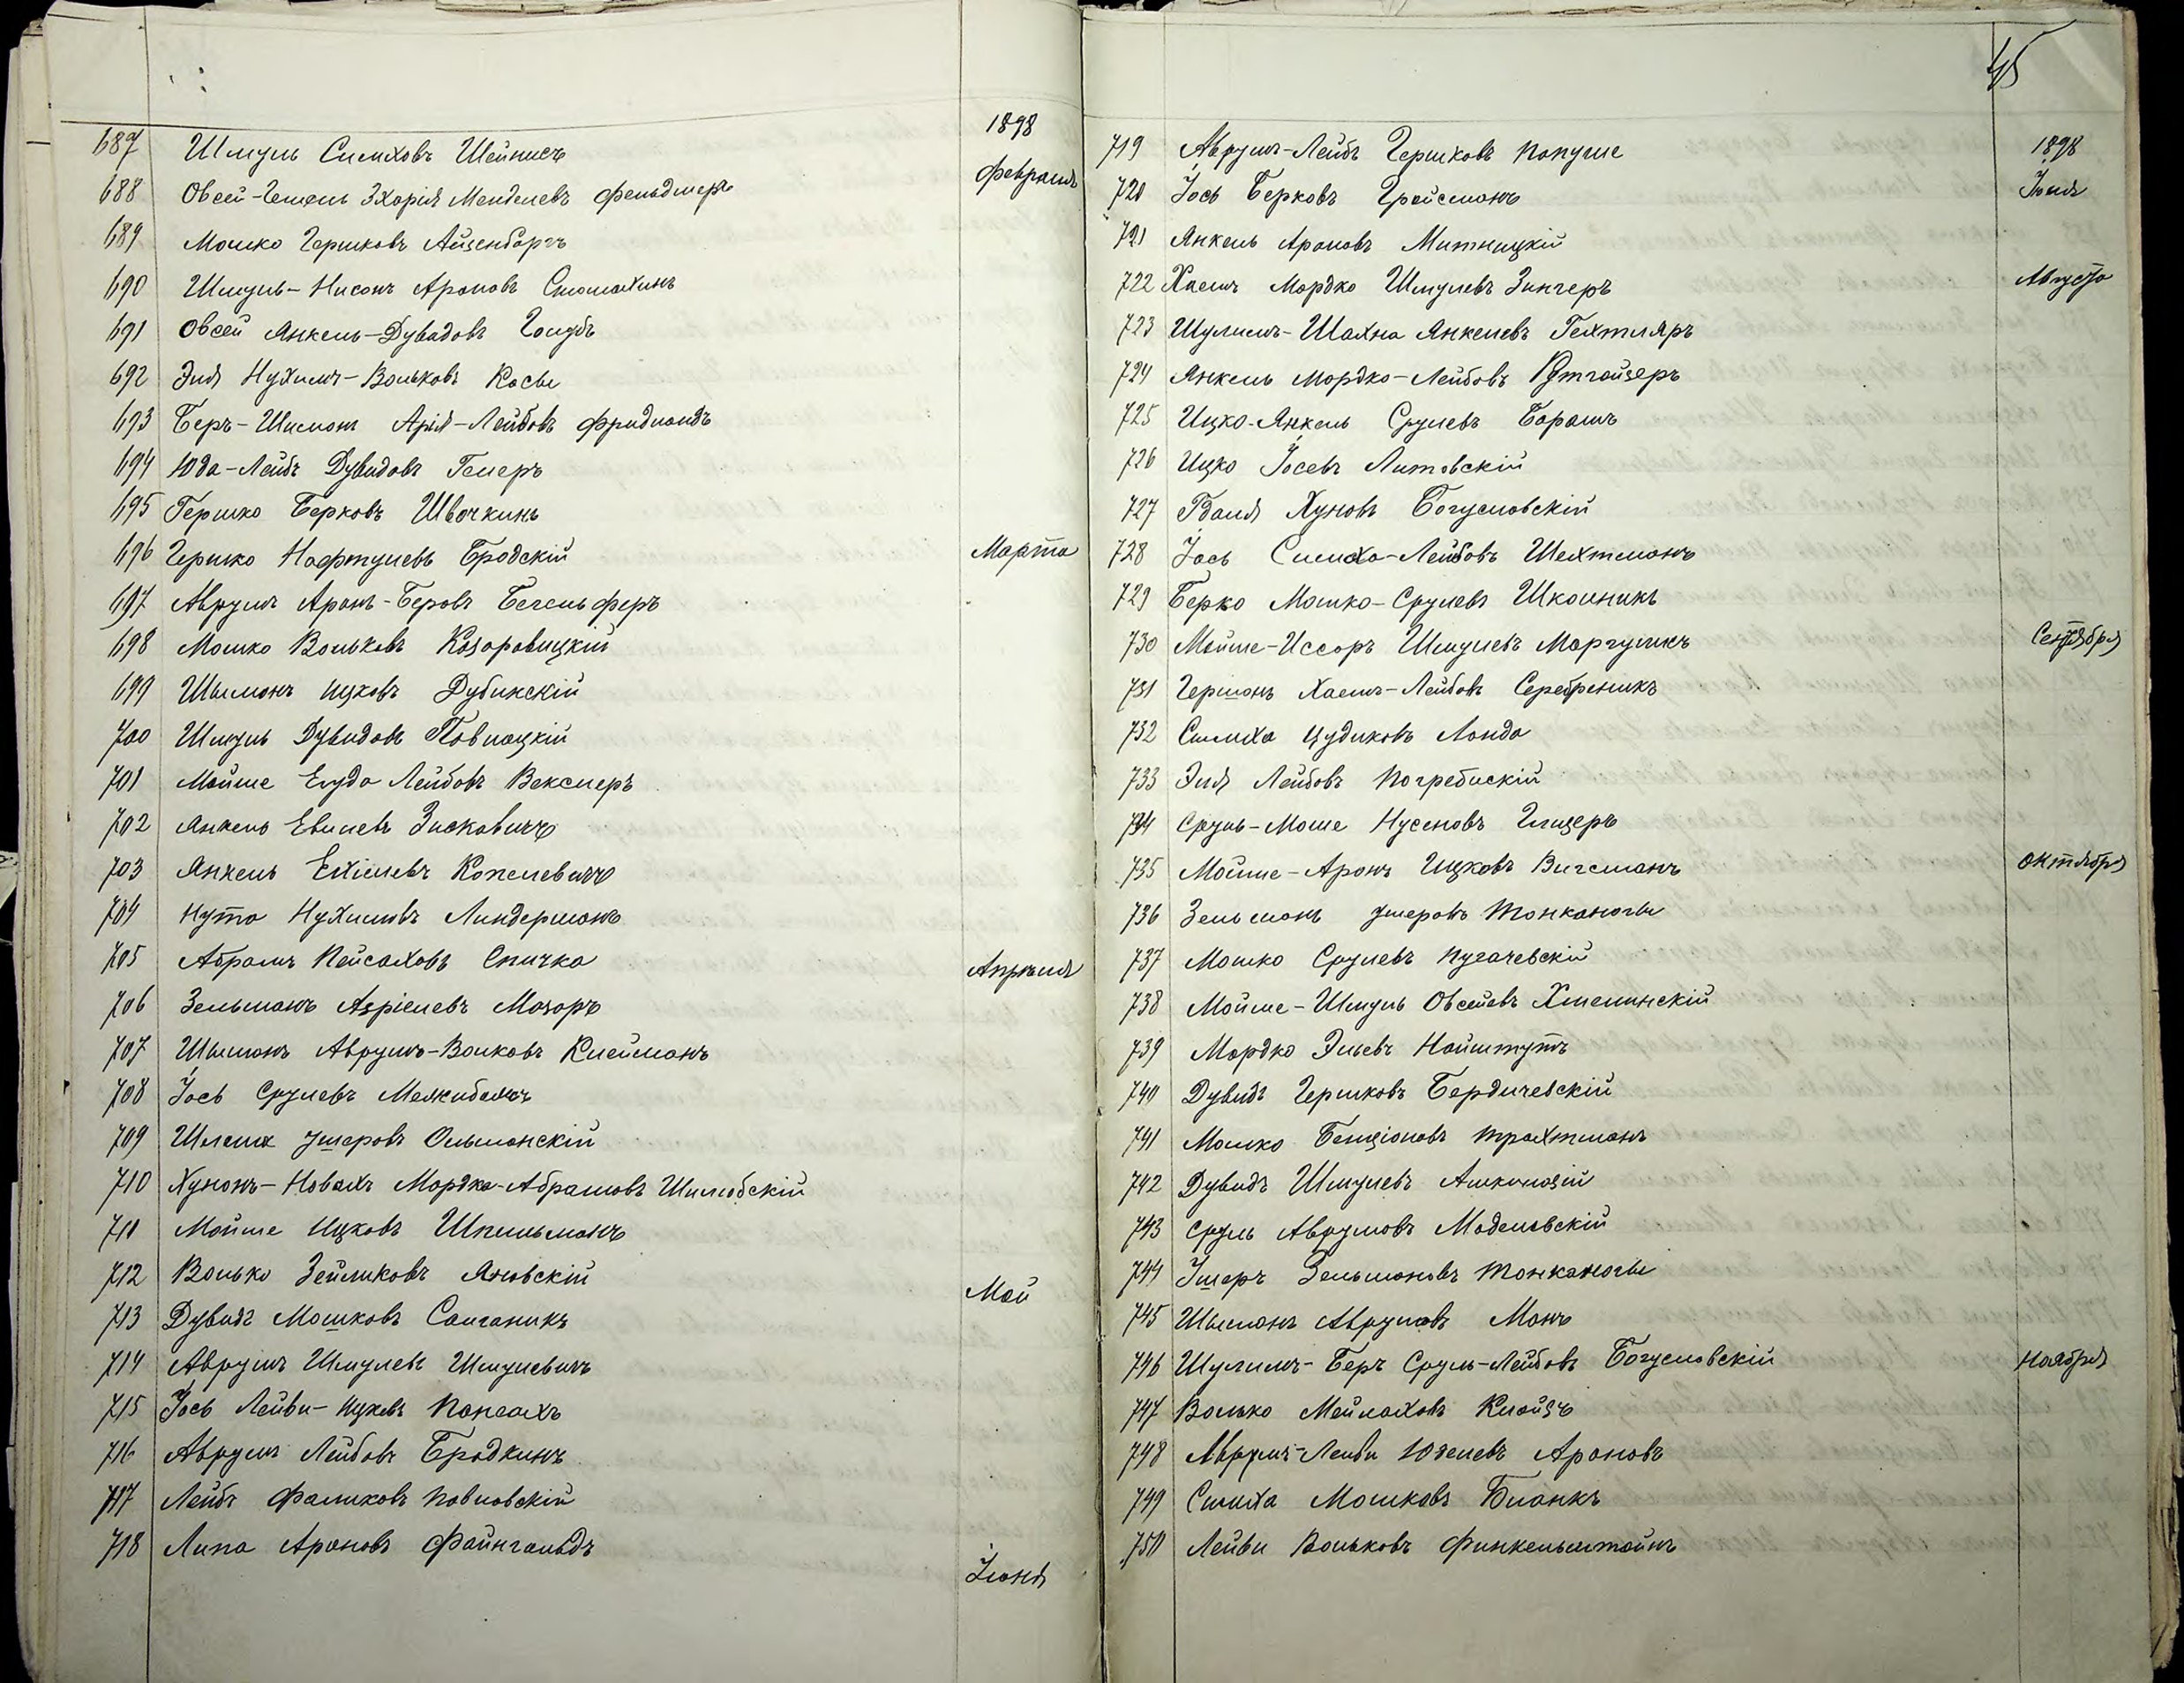 1898
687 Шмуль Симховъ Шейнисъ
688 Овсей-Гешель Зхарія Менделевъ Фельдшеръ Февраля
689 Мошко Гершковъ Айзенбаргъ
690 Шмуль-Нисонъ Ароновъ
691 Овсей Янкель-Дувидовъ Голубъ
692 Эля Нухимъ-Вольковъ Касы
693 Беръ-Шимонъ Арія-Лейбовъ Фридландъ
694 Юда-Лейбъ Дувидовъ Гелеръ
695 Гершко Берковъ Швочкинъ
696 Гершко Нафтулевъ Бродскій Марта
697 Аврумъ Аронъ-Беровъ Бегельферъ
698 Мошко Вольковъ Казаровицкій
699 Шимонъ Ицковъ Дубинскій
700 Шмуль Дувидовъ Повлоцкій
701 Мойше Егуда Лейбовъ Векслеръ
702 Янкель Евилевъ Зисковичъ
703 Янкель Ехіелевъ Копелевичъ
704 Нута Нухимовъ Линдерманъ
705 Абрамъ Пейсаховъ Спичка Апрѣля
706 Зельманъ Азріелевъ Мазоръ
707 Шимонъ Аврумъ-Волковъ Клейманъ
708 Іось Срулевъ
709 Шлема Ушеровъ Ольшанскій
710 Хунонъ-Новахъ Мордко-Абрамовъ
711 Мойше Ицковъ Шпильманъ
712 Волько Зейликовъ Яновскій Май
713 Дувидъ Мошковъ Салганикъ
714 Аврумъ Шмулевъ Шмулевичъ
715 Іось Лейви-Ицковъ Папсахъ
716 Аврумъ Лейбовъ Бродкинъ
717 Лейбъ Фаликовъ Повловскій
718 Липа Ароновъ Файнгольдъ
Іюня
45
1898
719 Аврумъ-Лейбъ Гершковъ Папуше
720 Іось Берковъ Грейсманъ Іюля
721 Янкель Ароновъ Митницкій
722 Хаимъ Мордко Шмулевъ Зингеръ Августа
723 Шулимъ-Шахна Янкелевъ Гехтляръ
724 Янкель Мордко-Лейбовъ Ротгайзеръ
725 Ицко-Янкель Срулевъ Барамъ
726 Ицко Іосевъ Литовскій
727 Хуновъ Богуславскій
728 Іось Симха-Лейбовъ Шехтманъ
729 Берко Мошко-Срулевъ Школникъ
730 Мойше-Иссоръ Шмулевъ Маргуликъ Сентября
731 Гершонъ Хаимъ-Лейбовъ Серебреникъ
732 Симха Цудиковъ Ланда
733 Эля Лейбовъ Погребискій
734 Сруль-Моше Нусеновъ Глизеръ
735 Мойше-Аронъ Ицковъ Вигсманъ Октября
736 Зельманъ Ушеровъ Тонканоги
737 Мошко Срулевъ Пугачевскій
738 Мойше-Шмуль Овсеевъ Хмелинскій
739 Мордко Эльевъ Найштутъ
740 Дувидъ Гершковъ Бердичевскій
741 Мошко Бенціоновъ Трахтманъ
742 Дувидъ Шмулевъ Ашканазій
743 Сруль Аврумовъ Маделовскій
744 Ушеръ Зельмановъ Тонканоги
745 Шимонъ Аврумовъ Манъ
746 Шулимъ-Беръ Сруль-Лейбовъ Богуславскій Ноября
747 Волько Мейлаховъ Клайзъ
748 Аврумъ-Лейви Юделевъ Ароновъ
749 Симха Мошковъ Бланкъ
750 Лейви Вольковъ Финкельштейнъ